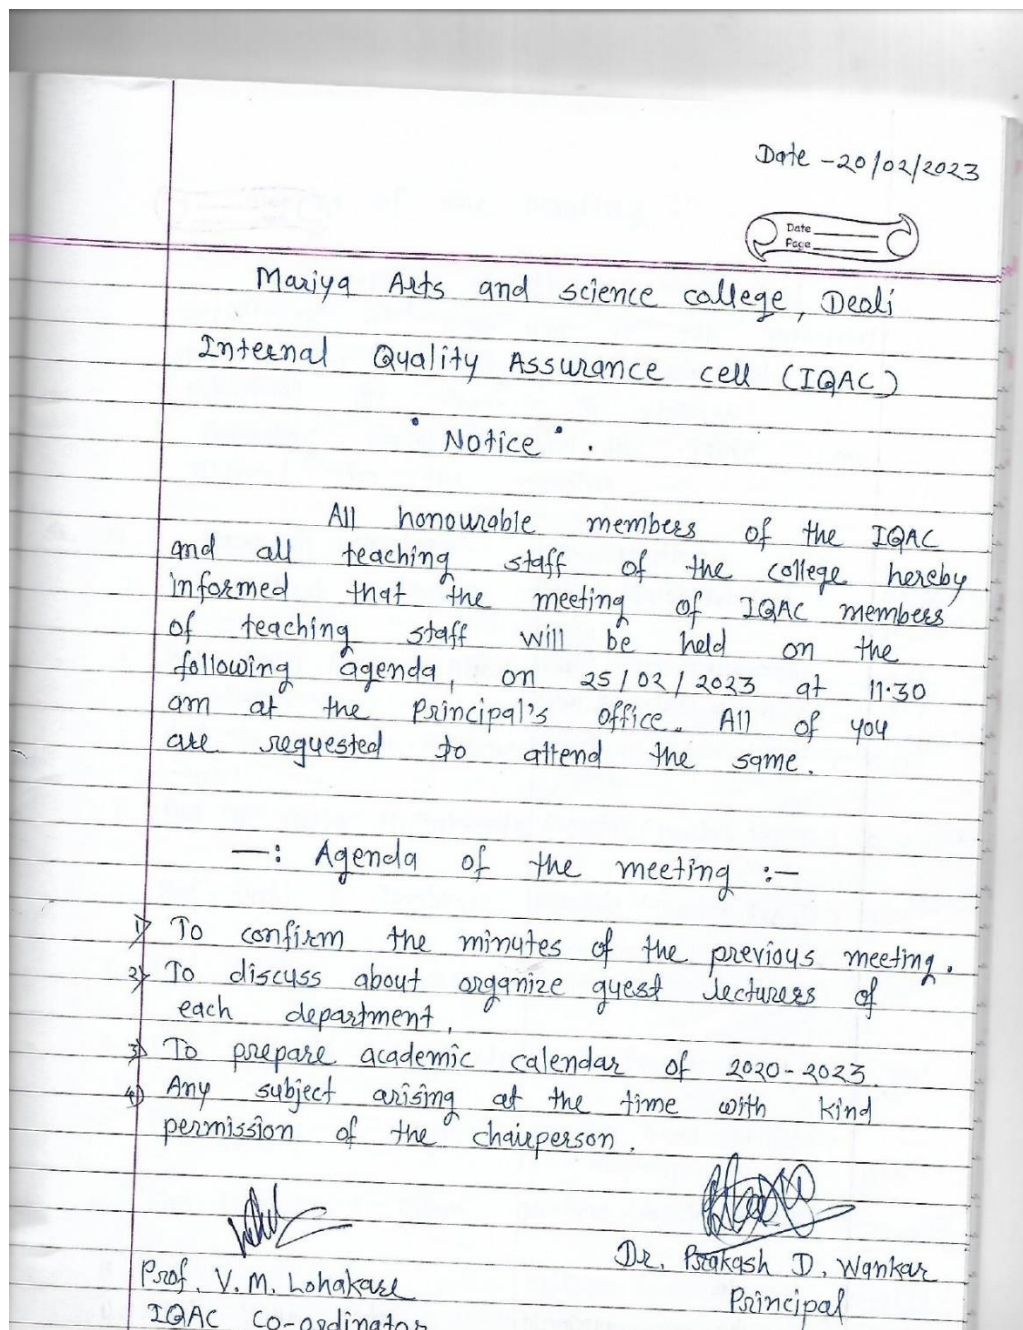 Date - 20/02/2023
Date
Page
Mariya Arts and science college, Deoli
Internal Quality Assurance cell (IQAC)
" Notice " .
All honourable members of the IQAC
and all teaching staff of the college hereby
informed that the meeting of IQAC members
of teaching staff will be held on the
following agenda, on 25/02/2023 at 11.30
am at the Principal's office. All of you
are requested to attend the same.
—: Agenda of the meeting :—
1) To confirm the minutes of the previous meeting.
2) To discuss about organize guest lecturers of
each department,
3) To prepare academic calendar of 2020-2023.
4) Any subject arising at the time with kind
permission of the chairperson.
Prof. V. M. Lohakare
Dr. Prakash D. Wankar
IQAC Co-ordinator
Principal